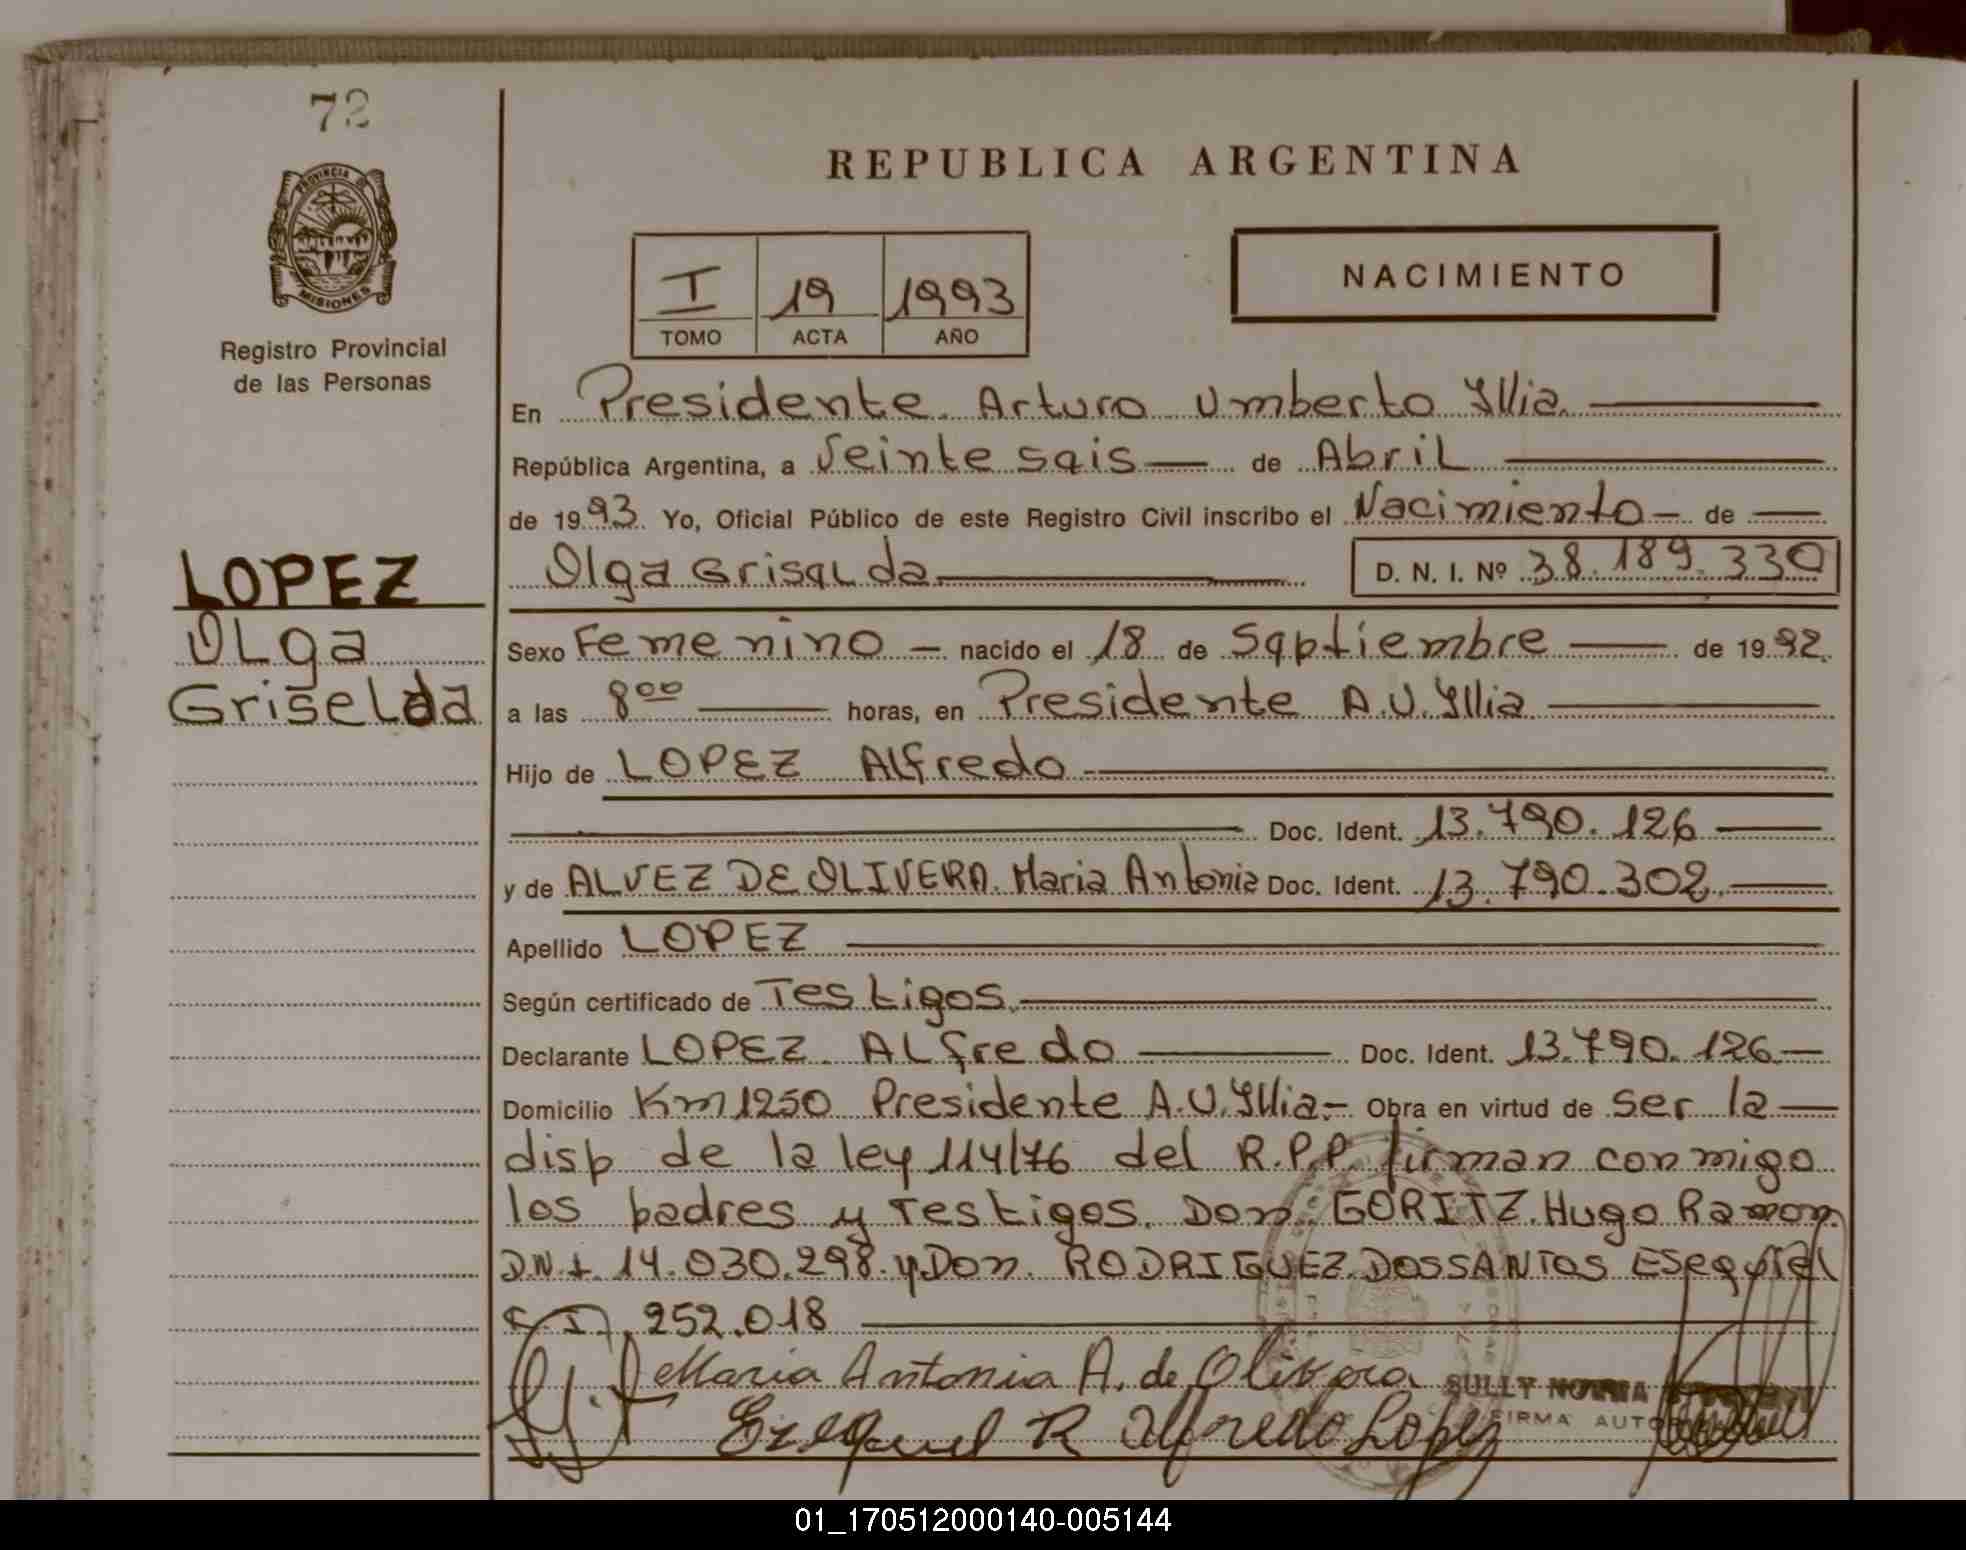 72
REPUBLICA ARGENTINA
PROVINCIA DE
MISIONES
Registro Provincial
de las Personas
I 19 1993
TOMO ACTA AÑO
NACIMIENTO
En Presidente Arturo Umberto Yllia
República Argentina, a Veinte seis de Abril
de 1993 Yo, Oficial Público de este Registro Civil inscribo el Nacimiento de
Olga Griselda D. N. I. Nº 38.189.330
LOPEZ
OLga
GriseLda
Sexo Femenino nacido el 18 de Septiembre de 1992
a las 8⁰⁰ horas, en Presidente A.U. Yllia
Hijo de LOPEZ Alfredo
Doc. Ident. 13.790.126
y de ALVEZ DE OLIVERA Maria Antonia Doc. Ident. 13.790.302
Apellido LOPEZ
Según certificado de Testigos
Declarante LOPEZ ALfredo Doc. Ident. 13.790.126
Domicilio Km 1250 Presidente A.U. Yllia Obra en virtud de ser la
disp de la ley 114/76 del R.P.P. firman conmigo
los padres y Testigos. Don GORITZ Hugo Ramon
D.N.I. 14.030.298 y Don RODRIGUEZ DOSSANTOS ESequiel
C.I. 252.018
Maria Antonia A. de Olivera
Ezequiel R Alfredo Lopez
SULLY NORMA
FIRMA
01_170512000140-005144